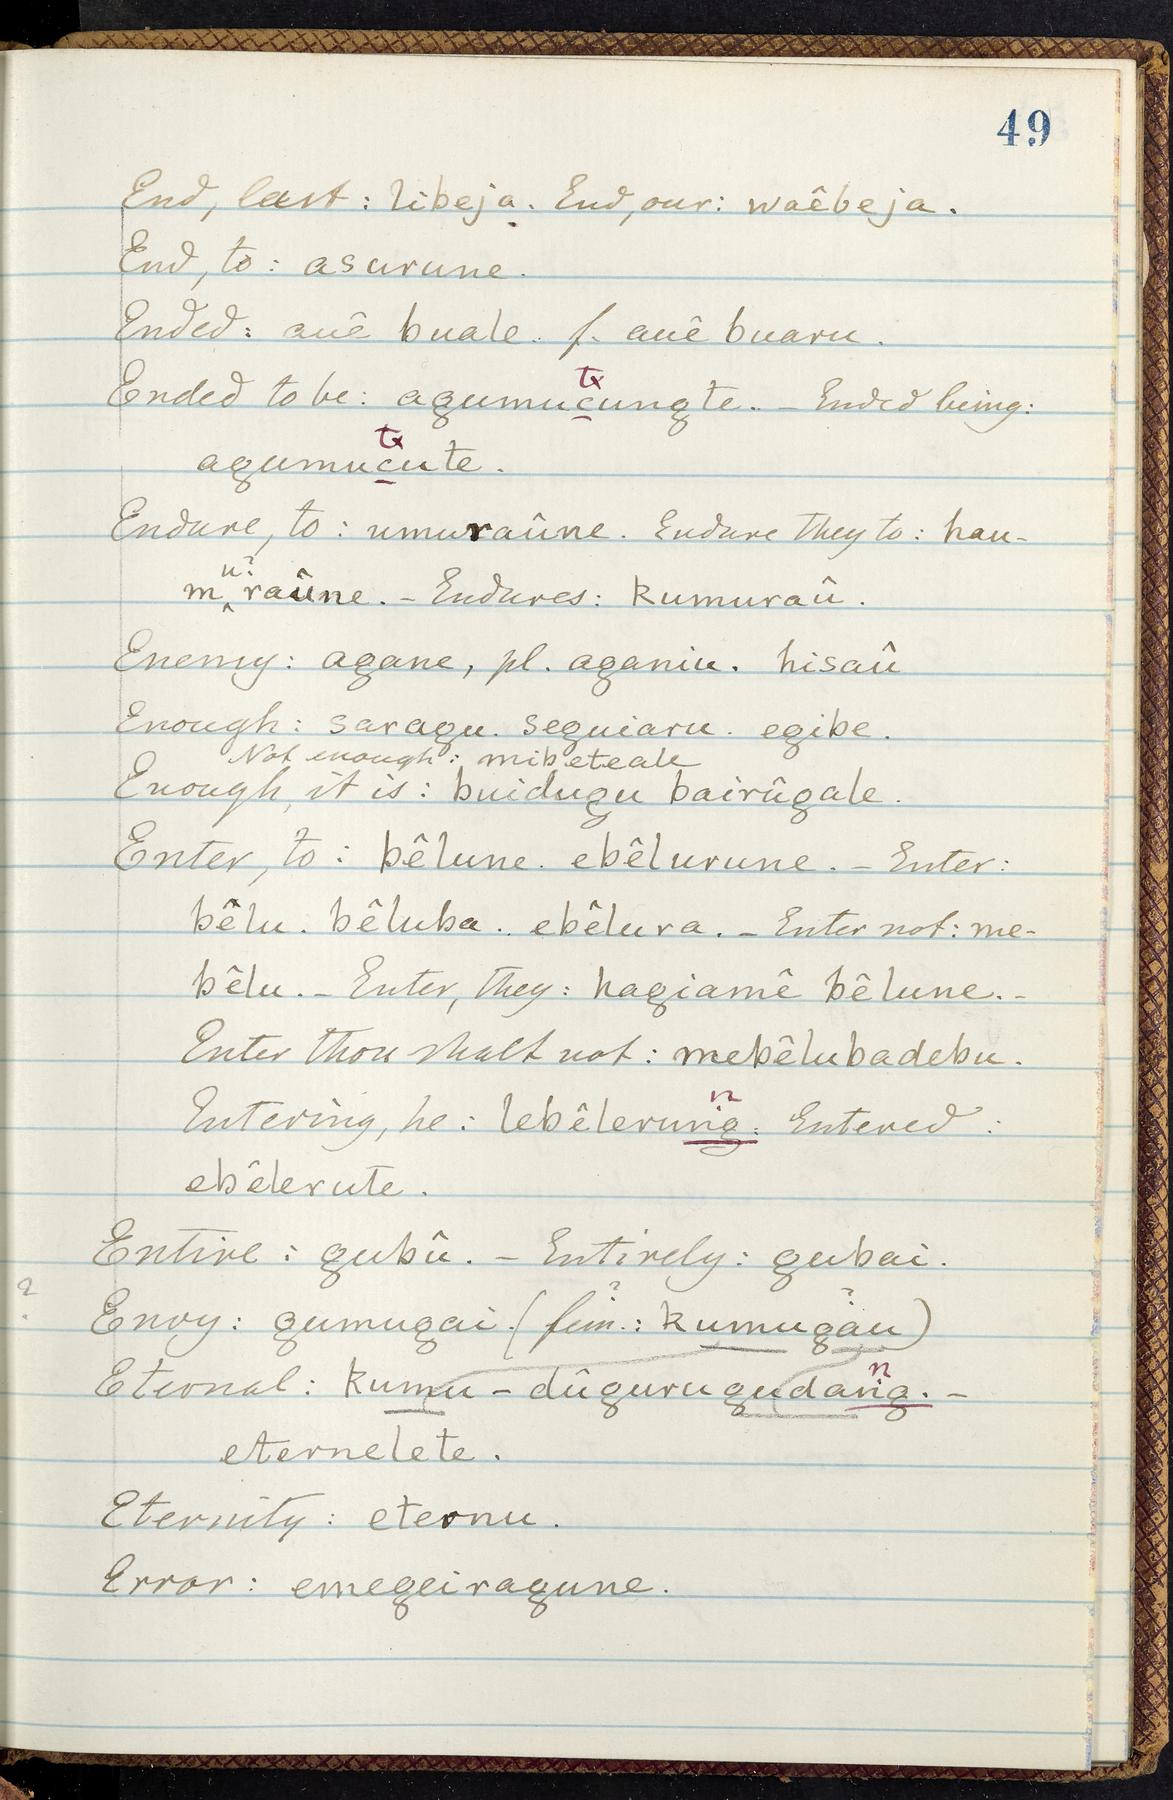 49
End, last: libeja. End, our: waêbeja.
End, to: asurune.
Ended: auê buale. f. auê buaru.
tx
Ended to be: agumucungte. – Ended being:
tx
agumucute.
Endure, to: umuraûne. Endure they to: hau-
u?
m‸raûne. – Endures: kumuraû.
Enemy: agane, pl. aganiu. hisaû
Enough: saragu. seguiaru. egibe.
Not enough: mibeteale
Enough, it is: buidugu bairûgale.
Enter, to: bêlune. ebêlurune. – Enter:
bêlu. bêluba.. ebêlura. – Enter not: me-
bêlu. – Enter, they: hagiamê bêlune. –
Enter thou shalt not: mebêlubadebu.
n
Entering, he: lebêlerung. Entered:
ebêlerute.
Entire: gubû. – Entirely: gubai.
? Envy: gumugai. (fem.?: kumugàu?)
n
Eternal: kumu – dûgurugudang. –
eternelete.
Eternity: eternu.
Error: emegeiragune.